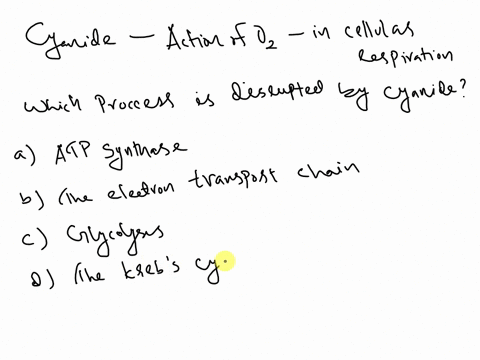 Cyanide — Action of O2 — in cellular
Respiration
Which Proccess is disrupted by cyanide?
a) ATP Synthase
b) The electron transport chain
c) Glycolysis
d) The kreb's cy